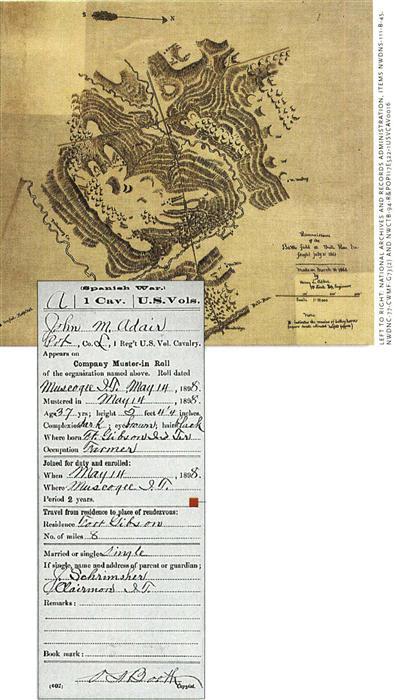 S N
Reconnaissance
of the
Battle field at Bull Run Va.
fought July 21 1861
Made on March 14 1862
by
Note:
LEFT TO RIGHT: NATIONAL ARCHIVES AND RECORDS ADMINISTRATION, ITEMS NWDNS-111-B-45,
NWDNC-77-CWMF-G73(2) AND NWCTB-94-
(Spanish War.)
A | 1 Cav. | U.S. Vols.
John M. Adair
, Co. L, 1 Reg't U.S. Vol. Cavalry.
Appears on
Company Muster-in Roll
of the organization named above. Roll dated
Muscogee I.T. May 14, 1898.
Mustered in May 14, 1898.
Age 37 yrs; height 5 feet 4¼ inches.
Complexion dark; eyes brown; hair black
Where born Ft. Gibson Ind Ter
Occupation Farmer
Joined for duty and enrolled:
When May 14, 1898.
Where Muscogee I.T.
Period 2 years.
Travel from residence to place of rendezvous:
Residence Fort Gibson
No. of miles 8
Married or single Single
If single, name and address of parent or guardian;
J. Schrimsher
Clairmon I.T.
Remarks:
Book mark:
Booth
(607) Copyist.